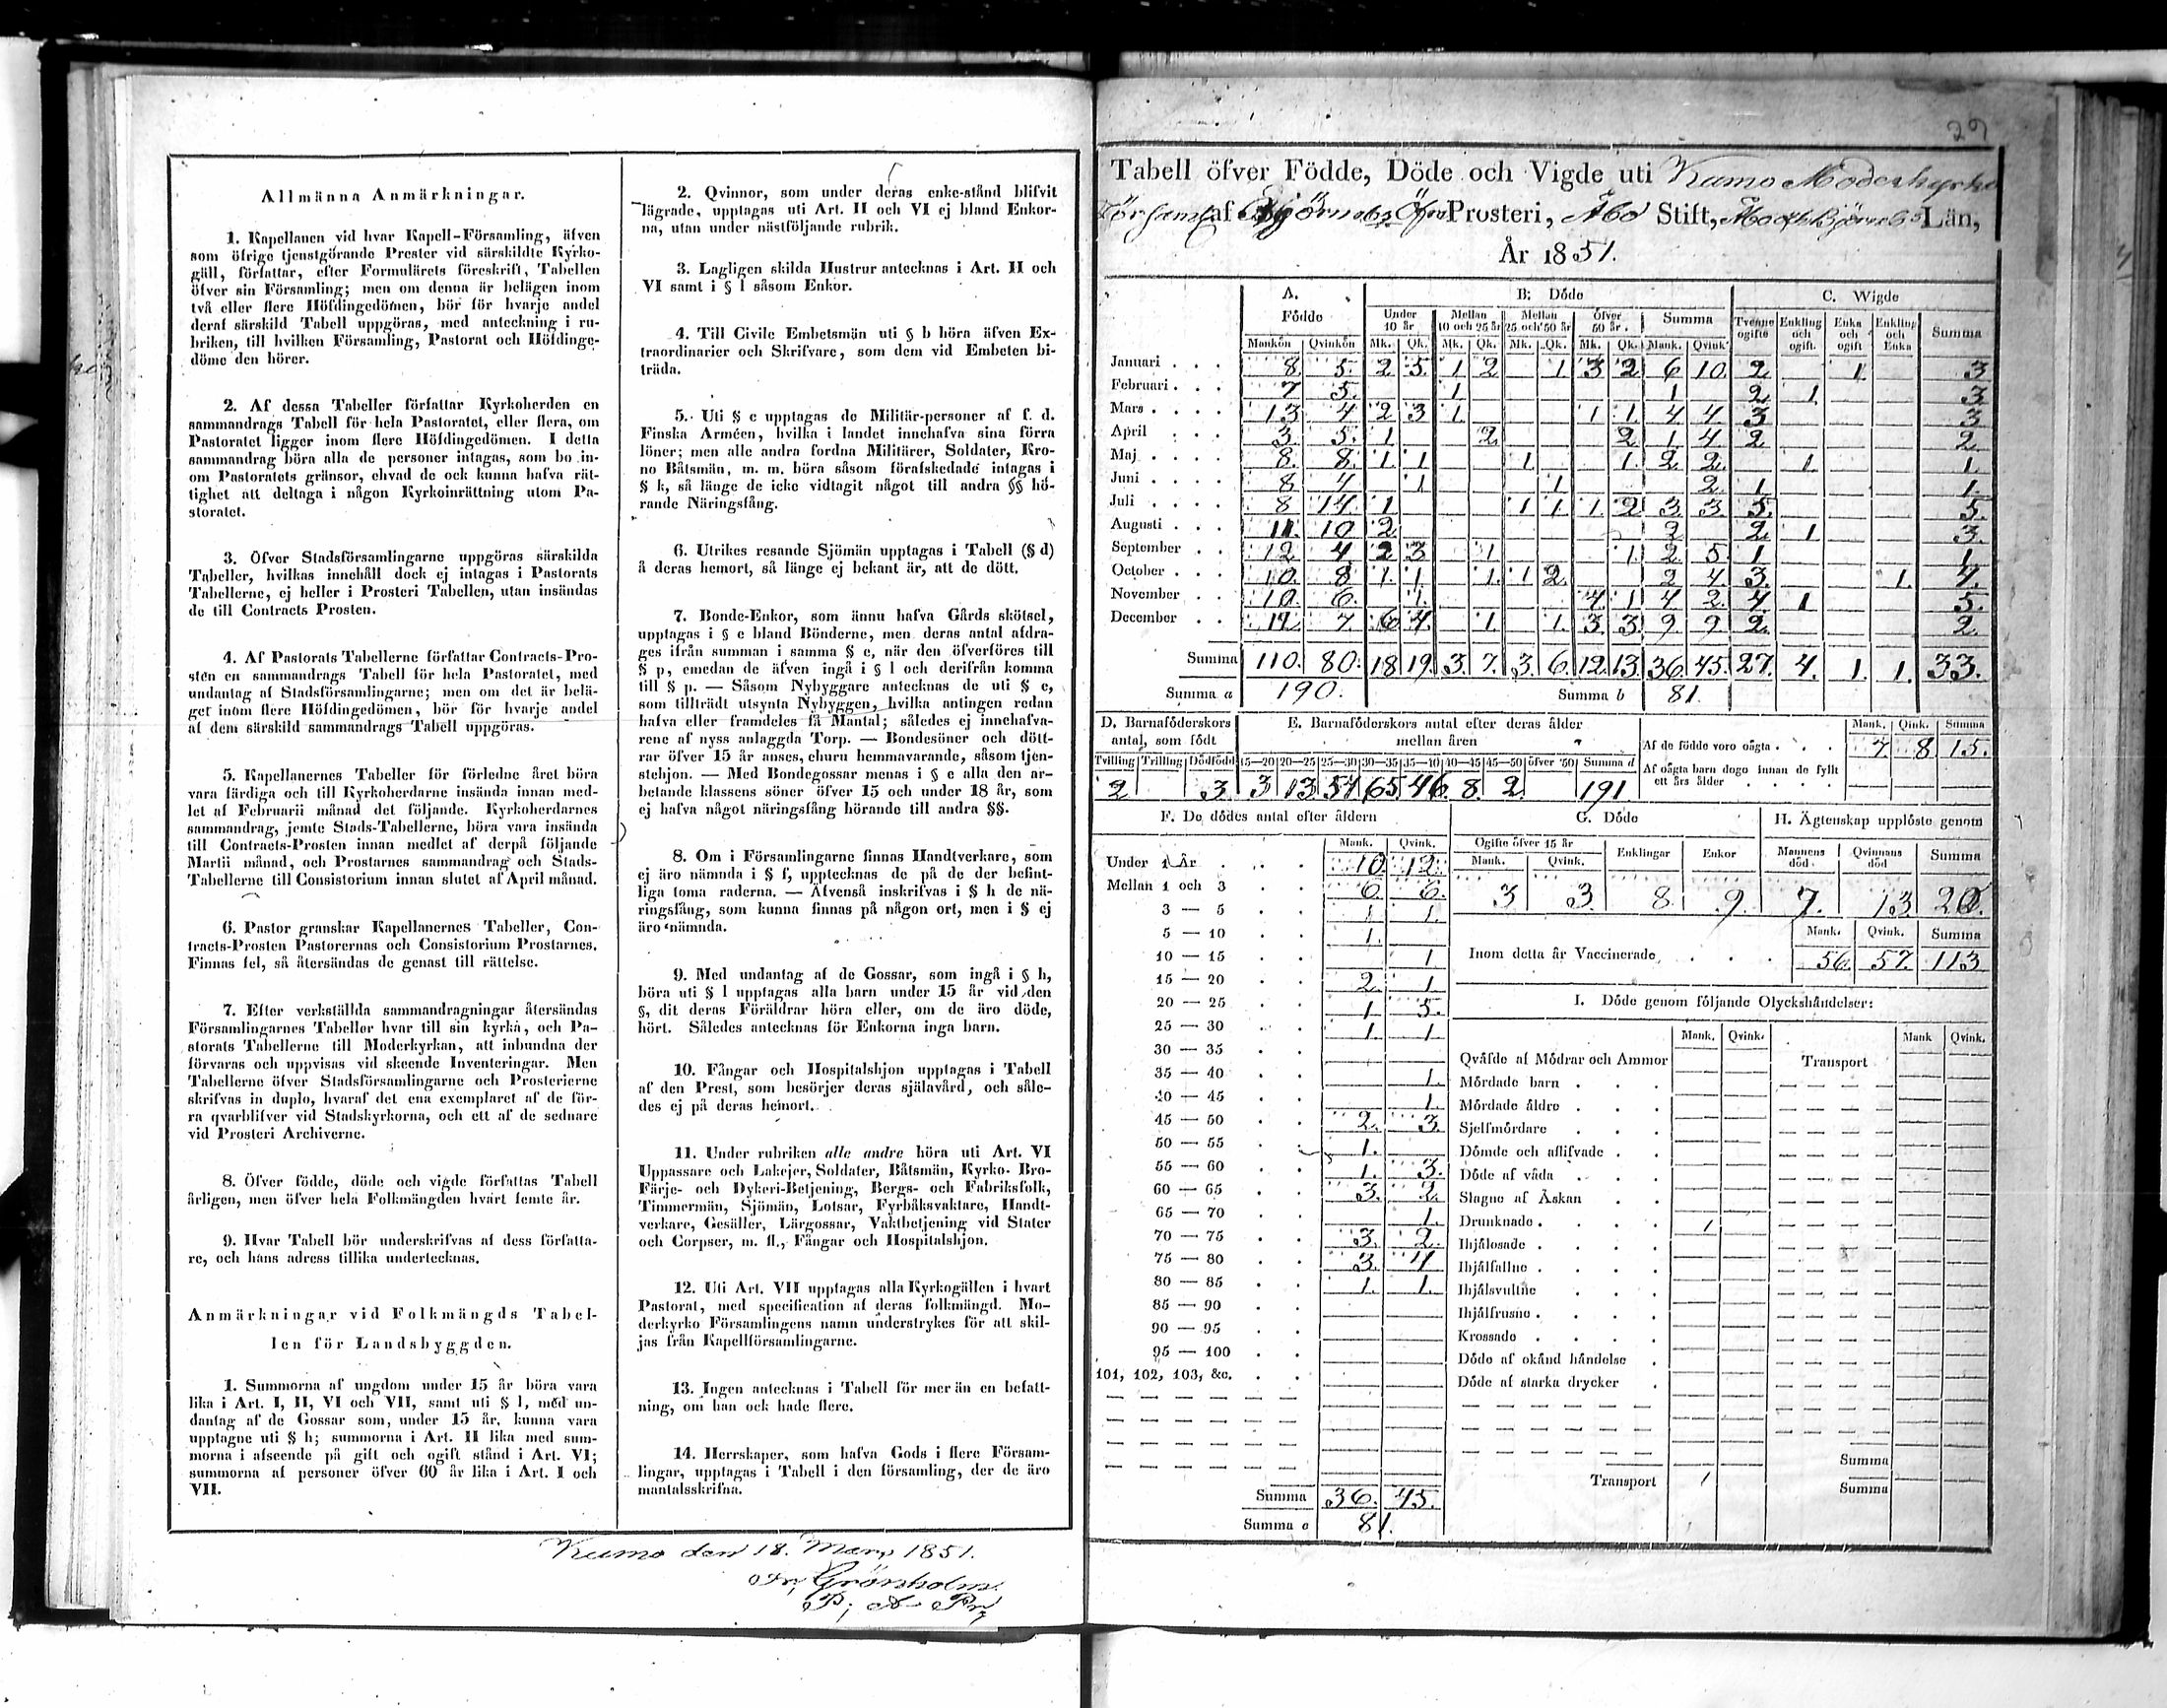 Allmänna Anmärkningar.
1. Kapellanen vid hvar Kapell-Församling, äfven
som öfrige tjenstgörande Prester vid särskildte Kyrko-
gäll, författar, efter Formulärets föreskrift, Tabellen
öfver sin Församling; men om denna är belägen inom
två eller flere Höfdingedömen, bör för hvarje andel
deraf särskild Tabell uppgöras, med anteckning i ru-
briken, till hvilken Församling, Pastorat och Höfdinge-
döme den hörer.
2. Af dessa Tabeller författar Kyrkoherden en
sammandrags Tabell för hela Pastoratet, eller flera, om
Pastoratet ligger inom flere Höfdingedömen. I detta
sammandrag böra alla de personer intagas, som bo in-
om Pastoratets gränsor, ehvad de ock kunna hafva rät-
tighet att deltaga i någon Kyrkoinrättning utom Pa-
storatet.
3. Öfver Stadsförsamlingarne uppgöras särskilda
Tabeller, hvilkas innehåll dock ej intagas i Pastorats
Tabellerne, ej heller i Prosteri Tabellen, utan insändas
de till Contracts Prosten.
4. Af Pastorats Tabellerne författar Contracts-Pro-
sten en sammandrags Tabell för hela Pastoratet, med
undantag af Stadsförsamlingarne; men om det är belä-
get inom flere Höfdingedömen, bör för hvarje andel
af dem särskild sammandrags Tabell uppgöras.
5. Kapellanernes Tabeller för förledne året böra
vara färdiga och till Kyrkoherdarne insända innan med-
let af Februarii månad det följande. Kyrkoherdarnes
sammandrag, jemte Stads-Tabellerne, böra vara insända
till Contracts-Prosten innan medlet af derpå följande
Martii månad, och Prostarnes sammandrag och Stads-
Tabellerne till Consistorium innan slutet af April månad.
6. Pastor granskar Kapellanernes Tabeller, Con-
tracts-Prosten Pastorernas och Consistorium Prostarnes.
Finnas fel, så återsändas de genast till rättelse.
7. Efter verkställda sammandragningar återsändas
Församlingarnes Tabeller hvar till sin kyrka, och Pa-
storats Tabellerne till Moderkyrkan, att inbundna der
förvaras och uppvisas vid skeende Inventeringar. Men
Tabellerne öfver Stadsförsamlingarne och Prosterierne
skrifvas in duplo, hvaraf det ena exemplaret af de för-
ra qvarblifver vid Stadskyrkorna, och ett af de sednare
vid Prosteri Archiverne.
8. Öfver födde, döde och vigde författas Tabell
årligen, men öfver hela Folkmängden hvart femte år.
9. Hvar Tabell bör underskrifvas af dess författa-
re, och hans adress tillika undertecknas.
Anmärkningar vid Folkmängds Tabel-
len för Landsbyggden.
1. Summorna af ungdom under 15 år böra vara
lika i Art. I, II, VI och VII, samt uti § l, med un-
dantag af de Gossar som, under 15 år, kunna vara
upptagne uti § h; summorna i Art. II lika med sum-
morna i afseende på gift och ogift stånd i Art. VI;
summorna af personer öfver 60 år lika i Art. I och
VII.
2. Qvinnor, som under deras enke-stånd blifvit
lägrade, upptagas uti Art. II och VI ej bland Enkor-
na, utan under nästföljande rubrik.
3. Lagligen skilda Hustrur antecknas i Art. II och
VI samt i § l såsom Enkor.
4. Till Civile Embetsmän uti § b höra äfven Ex-
traordinarier och Skrifvare, som dem vid Embeten bi-
träda.
5. Uti § c upptagas de Militär-personer af f. d.
Finska Arméen, hvilka i landet innehafva sina förra
löner; men alle andra fordna Militärer, Soldater, Kro-
no Båtsmän, m. m. böra såsom förafskedade intagas i
§ k, så länge de icke vidtagit något till andra §§ hö-
rande Näringsfång.
6. Utrikes resande Sjömän upptagas i Tabell (§ d)
å deras hemort, så länge ej bekant är, att de dött.
7. Bonde-Enkor, som ännu hafva Gårds skötsel,
upptagas i § e bland Bönderne, men deras antal afdra-
ges ifrån summan i samma § e, när den öfverföres till
§ p, emedan de äfven ingå i § l och derifrån komma
till § p. — Såsom Nybyggare antecknas de uti § e,
som tillträdt utsynta Nybyggen, hvilka antingen redan
hafva eller framdeles få Mantal; således ej innehafva-
rene af nyss anlaggda Torp. — Bondesöner och dött-
rar öfver 15 år anses, ehuru hemmavarande, såsom tjen-
stehjon. — Med Bondegossar menas i § e alla den ar-
betande klassens söner öfver 15 och under 18 år, som
ej hafva något näringsfång hörande till andra §§.
8. Om i Församlingarne finnas Handtverkare, som
ej äro nämnda i § f, upptecknas de på de der befint-
liga toma raderna. — Äfvenså inskrifvas i § h de nä-
ringsfång, som kunna finnas på någon ort, men i § ej
äro nämnda.
9. Med undantag af de Gossar, som ingå i § h,
böra uti § l upptagas alla barn under 15 år vid den
§, dit deras Föräldrar höra eller, om de äro döde,
hört. Således antecknas för Enkorna inga barn.
10. Fångar och Hospitalshjon upptagas i Tabell
af den Prest, som besörjer deras själavård, och såle-
des ej på deras hemort.
11. Under rubriken alle andre höra uti Art. VI
Uppassare och Lakejer, Soldater, Båtsmän, Kyrko- Bro-
Färje- och Dykeri-Betjening, Bergs- och Fabriksfolk,
Timmermän, Sjömän, Lotsar, Fyrbåksvaktare, Handt-
verkare, Gesäller, Lärgossar, Vaktbetjening vid Stater
och Corpser, m. fl., Fångar och Hospitalshjon.
12. Uti Art. VII upptagas alla Kyrkogällen i hvart
Pastorat, med specification af deras folkmängd. Mo-
derkyrko Församlingens namn understrykes för att skil-
jas från Kapellförsamlingarne.
13. Ingen antecknas i Tabell för mer än en befatt-
ning, om han ock hade flere.
14. Herrskaper, som hafva Gods i flere Försam-
lingar, upptagas i Tabell i den församling, der de äro
mantalsskrifna.
Kumo den 18. Mars 1851.
Grönholm
29
Tabell öfver Födde, Döde och Vigde uti Kumo Moderkyrko
Församl af Björneb. Öfre Prosteri, Åbo Stift, Åbo och Björneb.s Län,
År 1851.
A. B: Döde C. Wigde
Födde Under 10 år Mellan 10 och 25 år Mellan 25 och 50 år Öfver 50 år. Summa Tvenne ogifte Enkling och ogift. Enka och ogift Enkling och Enka Summa
Mankön Qvinkön Mk. Qk. Mk. Qk. Mk. Qk. Mk. Qk. Mank. Qvink.
Januari . . . 8. 5. 2 5. 1 2 1. 3 2 6 10. 2. 1 3
Februari . . . 7 5. 1 1 2 1 3
Mars . . . . 13 4 2 3 1 1 1 4 4 3 3
April . . . 3 5. 1 2 2 1 4 2 2
Maj . . . . 8. 8. 1 1 1 1. 2 2 1 1.
Juni . . . . 8 4 1 1 2. 1 1.
Juli . . . . 8 14 1 1 1 1 2 3 3 5. 5.
Augusti . . . 11. 10 2 2 2. 1 3.
September . . 12 4 2 3 1 1. 2. 5. 1 1.
October . . . 10. 8 1. 1 1. 1 2 2 4 3. 1. 4.
November . . 10. 6. 1. 4 1 4 2. 4 1 5.
December . . 12 7. 6 4. 1. 1. 3. 3. 9. 9 2. 2.
Summa 110. 80. 18 19. 3. 7. 3. 6. 12. 13. 36. 45. 27. 4. 1. 1. 33.
Summa a 190. Summa b 81.
D. Barnaföderskors antal, som födt
Tvilling Trilling Dödfödd
2 3
E. Barnaföderskors antal efter deras ålder
mellan åren
15—20 20—25 25—30 30—35 35—40 40—45 45—50 öfver 50 Summa d
3 13 51 65 46. 8. 2. 191
Mank. Qink. Summa
Af de födde voro oägta . . . 7. 8 15.
Af oägta barn dogo innan de fyllt
ett års ålder . . . .
F. De dödes antal efter åldern
Mank. Qvink.
Under 1 År . . . 10. 12.
Mellan 1 och 3 . . 6. 6.
3 — 5 . . 1 1.
5 — 10 . . 1.
10 — 15 . . 1
15 — 20 . . 2. 1
20 — 25 . . 1 5.
25 — 30 . . 1. 1
30 — 35 . .
35 — 40 . . 1.
40 — 45 . . 1.
45 — 50 . . 2. 3.
50 — 55 . . 1.
55 — 60 . . 1. 3.
60 — 65 . . 3. 2.
65 — 70 . . 1.
70 — 75 . . 3. 2.
75 — 80 . . 3. 4
80 — 85 . . 1. 1.
85 — 90 . .
90 — 95 . .
95 — 100 . .
101, 102, 103, &c. . .
Summa 36. 45.
Summa c 81.
G. Döde
Ogifte öfver 15 år Enklingar Enkor
Mank. Qvink.
3 3. 8. 9.
H. Ägtenskap upplöste genom
Mannens död. Qvinnans död Summa
7. 13 20.
Mank. Qvink. Summa
Inom detta år Vaccinerade . . . 56. 57. 113
I. Döde genom följande Olyckshändelser:
Mank. Qvink. Mank Qvink.
Qväfde af Mödrar och Ammor Transport
Mördade barn . . .
Mördade äldre . . .
Sjelfmördare . . .
Dömde och aflifvade . .
Döde af våda . . .
Slagne af Åskan . .
Drunknade . . . . 1
Ihjälosade . . . .
Ihjälfallne . . . .
Ihjälsvultne . . .
Ihjälfrusne . . . .
Krossade . . . .
Döde af okänd händelse .
Döde af starka drycker .
Summa
Transport 1 Summa